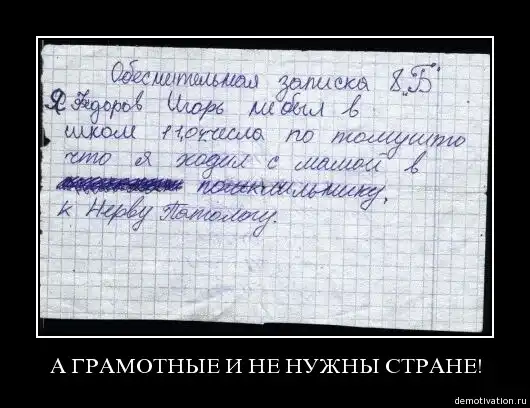 Обеснительная записка 8 „Б"
Я Федоров Игорь небыл в
школ 11,0 числа по томушто
что я ходил с мамой в
к Нерву Патологу.
А ГРАМОТНЫЕ И НЕ НУЖНЫ СТРАНЕ!
demotivation.ru